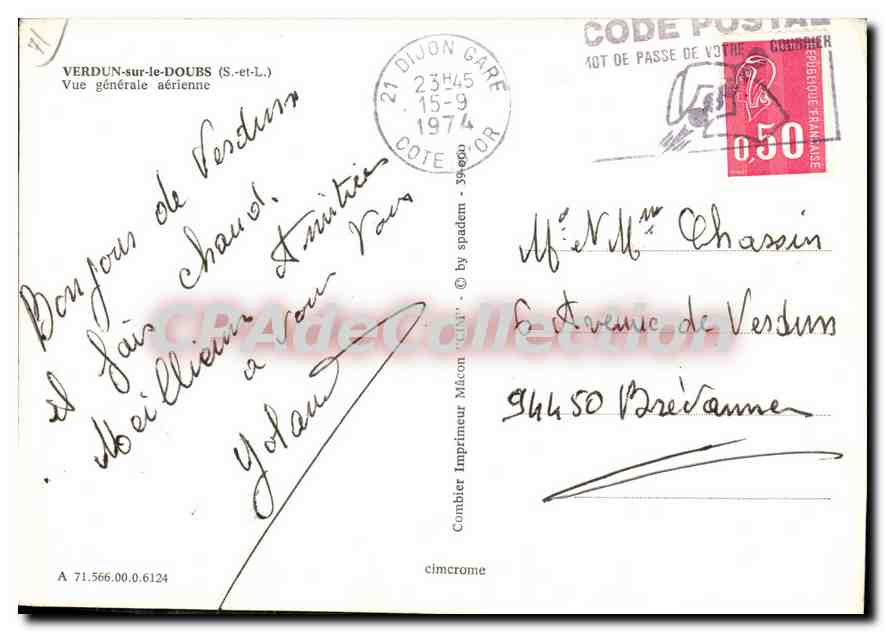 71
VERDUN-sur-le-DOUBS (S.-et-L.)
Vue générale aérienne
Bonjour de Verdun
il fais chaud.
Meilleures Amitiées
a vous
Yoland
A 71.566.00.0.6124
cimcrome
Combier Imprimeur Mâcon "CIM" - © by spadem - 39-000
21 DIJON GARE
23H45
15-9
1974
COTE D'OR
CODE POSTAL
MOT DE PASSE DE VOTRE COURRIER
REPUBLIQUE FRANCAISE
0,50
Mr N Mme Chassin
6 Avenue de Verdun
94450 Brévannes
CPAdeCollection